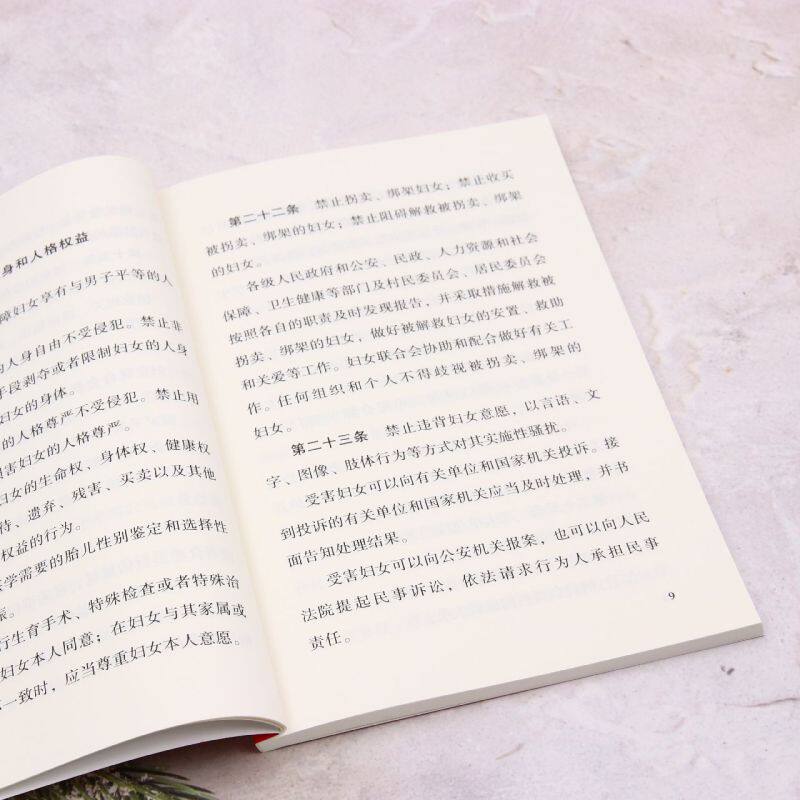 身和人格权益
障妇女享有与男子平等的人
的人身自由不受侵犯。禁止非
手段剥夺或者限制妇女的人身
妇女的身体。
的人格尊严不受侵犯。禁止用
损害妇女的人格尊严。
妇女的生命权、身体权、健康权
待、遗弃、残害、买卖以及其他
权益的行为。
医学需要的胎儿性别鉴定和选择性
行生育手术、特殊检查或者特殊治
妇女本人同意；在妇女与其家属或
一致时，应当尊重妇女本人意愿。
第二十二条 禁止拐卖、绑架妇女；禁止收买
被拐卖、绑架的妇女；禁止阻碍解救被拐卖、绑架
的妇女。
各级人民政府和公安、民政、人力资源和社会
保障、卫生健康等部门及村民委员会、居民委员会
按照各自的职责及时发现报告，并采取措施解救被
拐卖、绑架的妇女，做好被解救妇女的安置、救助
和关爱等工作。妇女联合会协助和配合做好有关工
作。任何组织和个人不得歧视被拐卖、绑架的
妇女。
第二十三条 禁止违背妇女意愿，以言语、文
字、图像、肢体行为等方式对其实施性骚扰。
受害妇女可以向有关单位和国家机关投诉。接
到投诉的有关单位和国家机关应当及时处理，并书
面告知处理结果。
受害妇女可以向公安机关报案，也可以向人民
法院提起民事诉讼，依法请求行为人承担民事
责任。
9